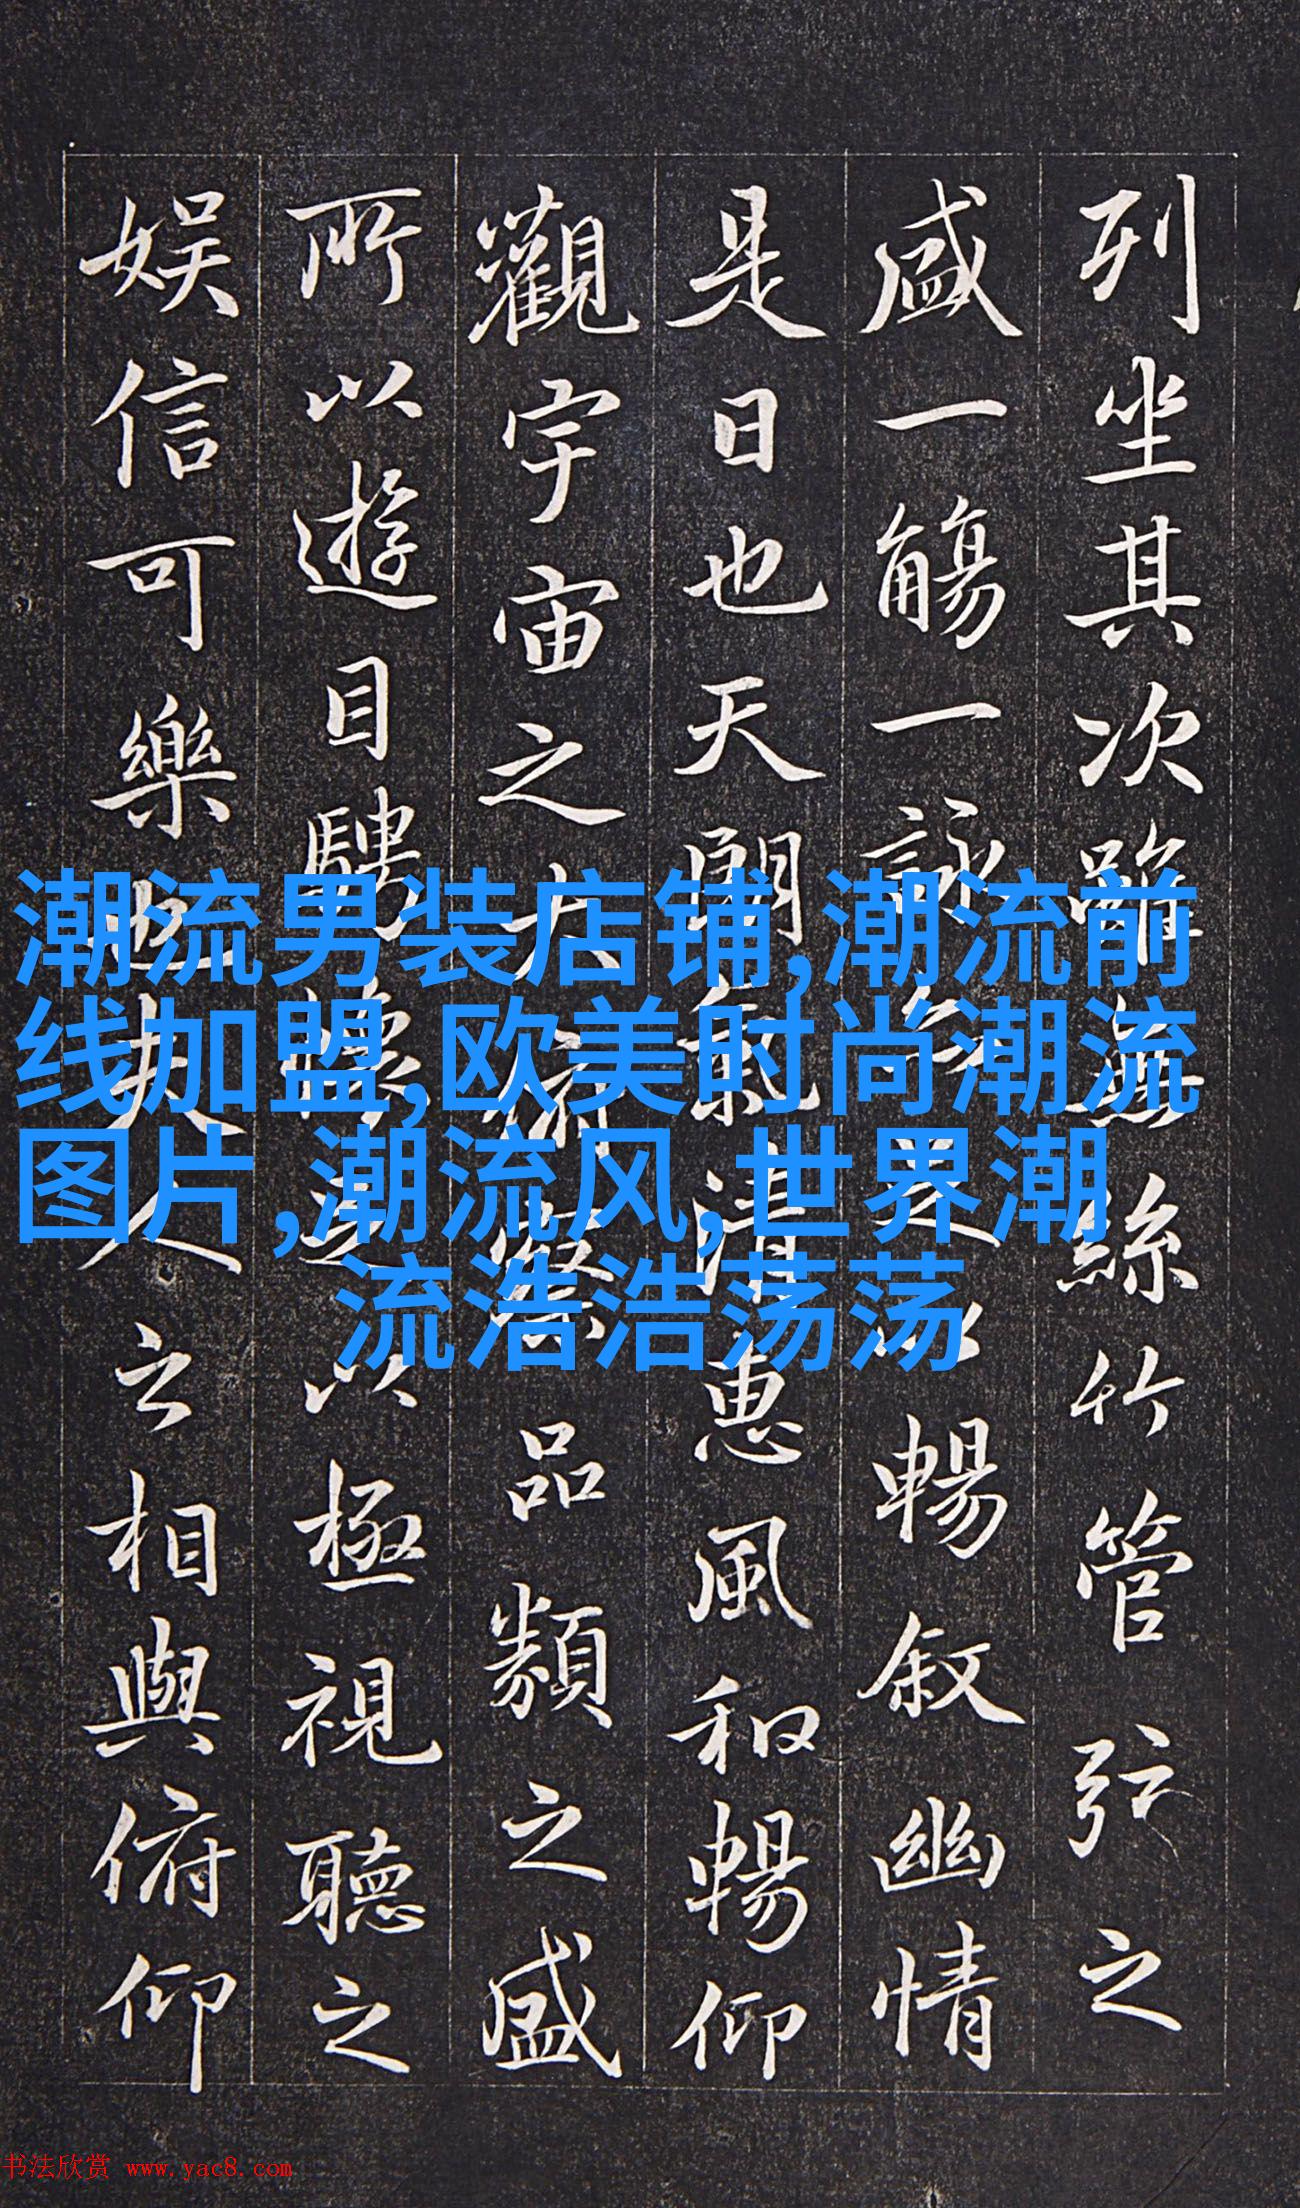 列坐其次雖無絲竹管弦之
盛一觴一詠亦足以暢叙幽情
是日也天朗氣清惠風和暢仰
觀宇宙之大俯察品類之盛
所以遊目騁懷足以極視聽之
娱信可樂也夫人之相與俯仰
潮流男装店铺,潮流前
线加盟,欧美时尚潮流
图片,潮流风,世界潮
流浩浩荡荡
书法欣赏 www.yac8.com